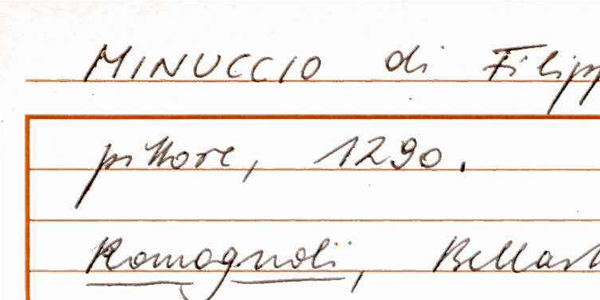 MINUCCIO di Filipp
pittore, 1290.
Romagnoli, Bellart